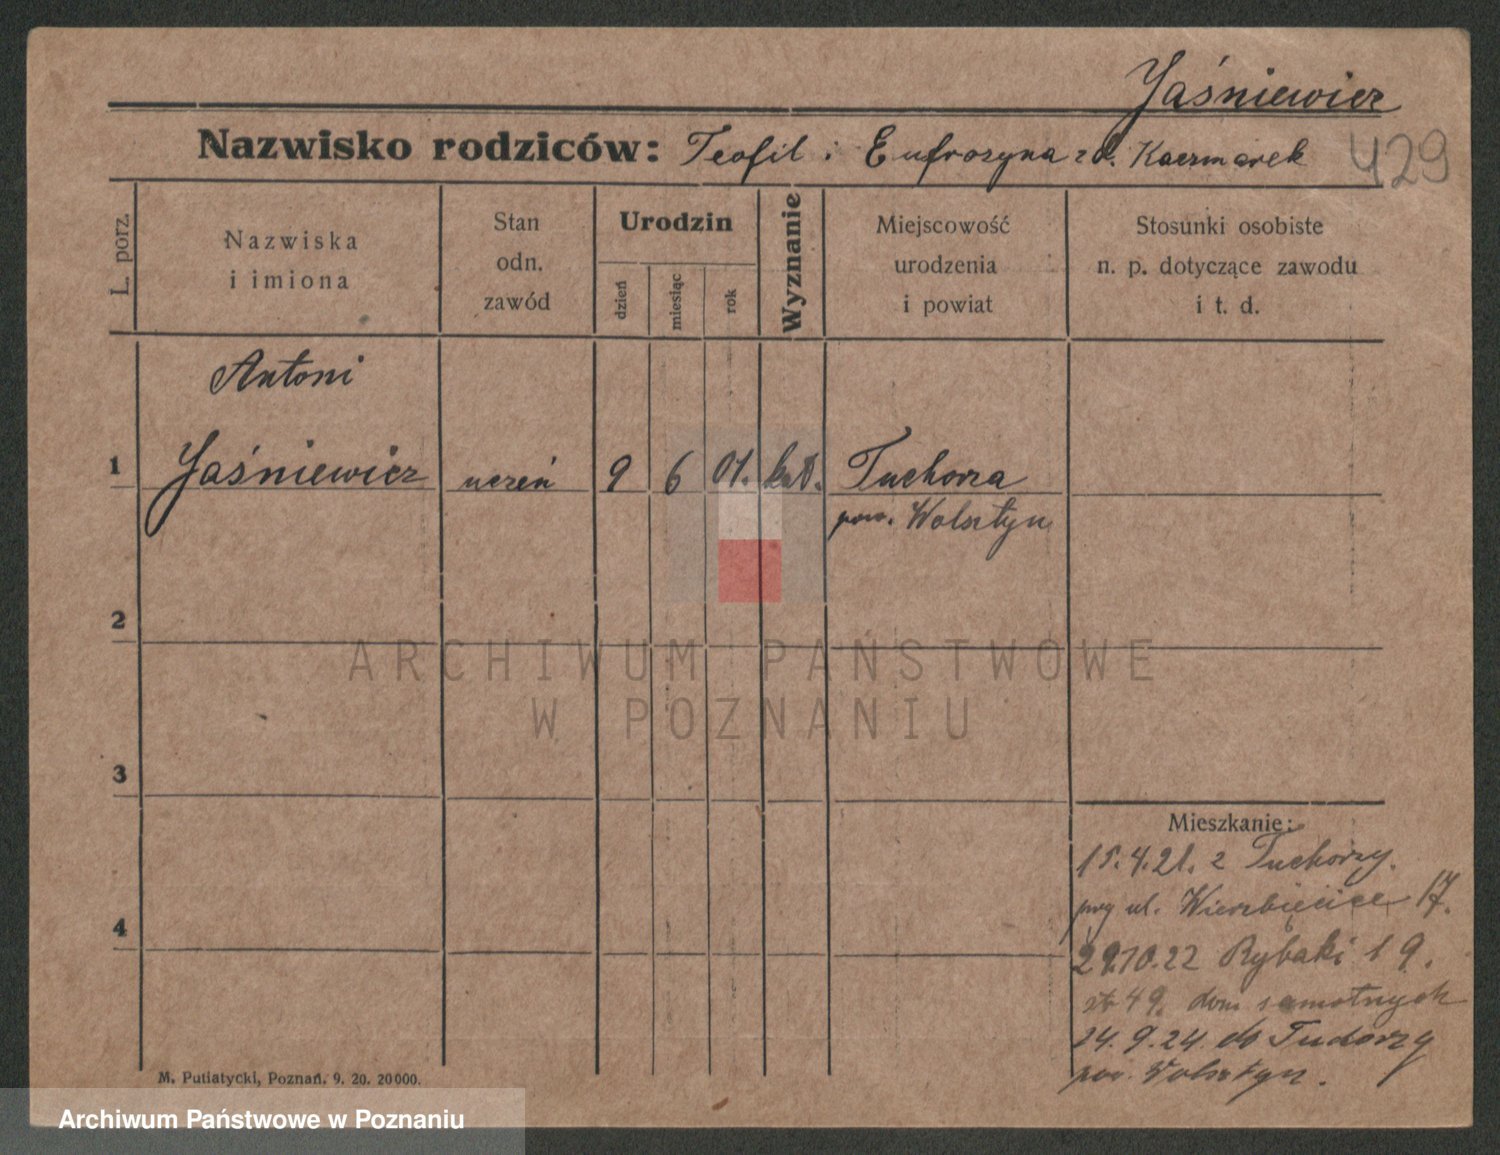 Jaśniewicz
Nazwisko rodziców: Teofil i Eufrozyna zd. Kaczmarek 429
L. porz.
Nazwiska
i imiona
Stan
odn.
zawód
Urodzin
dzień
miesiąc
rok
Wyznanie
Miejscowość
urodzenia
i powiat
Stosunki osobiste
n. p. dotyczące zawodu
i t. d.
Antoni
1 Jaśniewicz uczeń 9 6 01. kat. Tuchorza
pow. Wolsztyn
2
3
4
ARCHIWUM PAŃSTWOWE
W POZNANIU
Mieszkanie:
15.4.21. z Tuchorzy.
przy ul. Wierzbięcice 17.
29.10.22 Rybaki 19.
49. dom samotnych
24.9.24. do Tuchorzy
pow. Wolsztyn.
M. Putiatycki, Poznań. 9. 20. 20000.
Archiwum Państwowe w Poznaniu